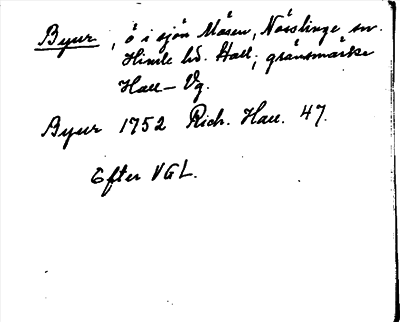 Byur, ö i sjön Måsen, Nösslinge sn.
Himle hd. Hall., gränsmärke
Hall – Vg.
Byur 1752 Rich. Hall. 47.
Efter VGL.